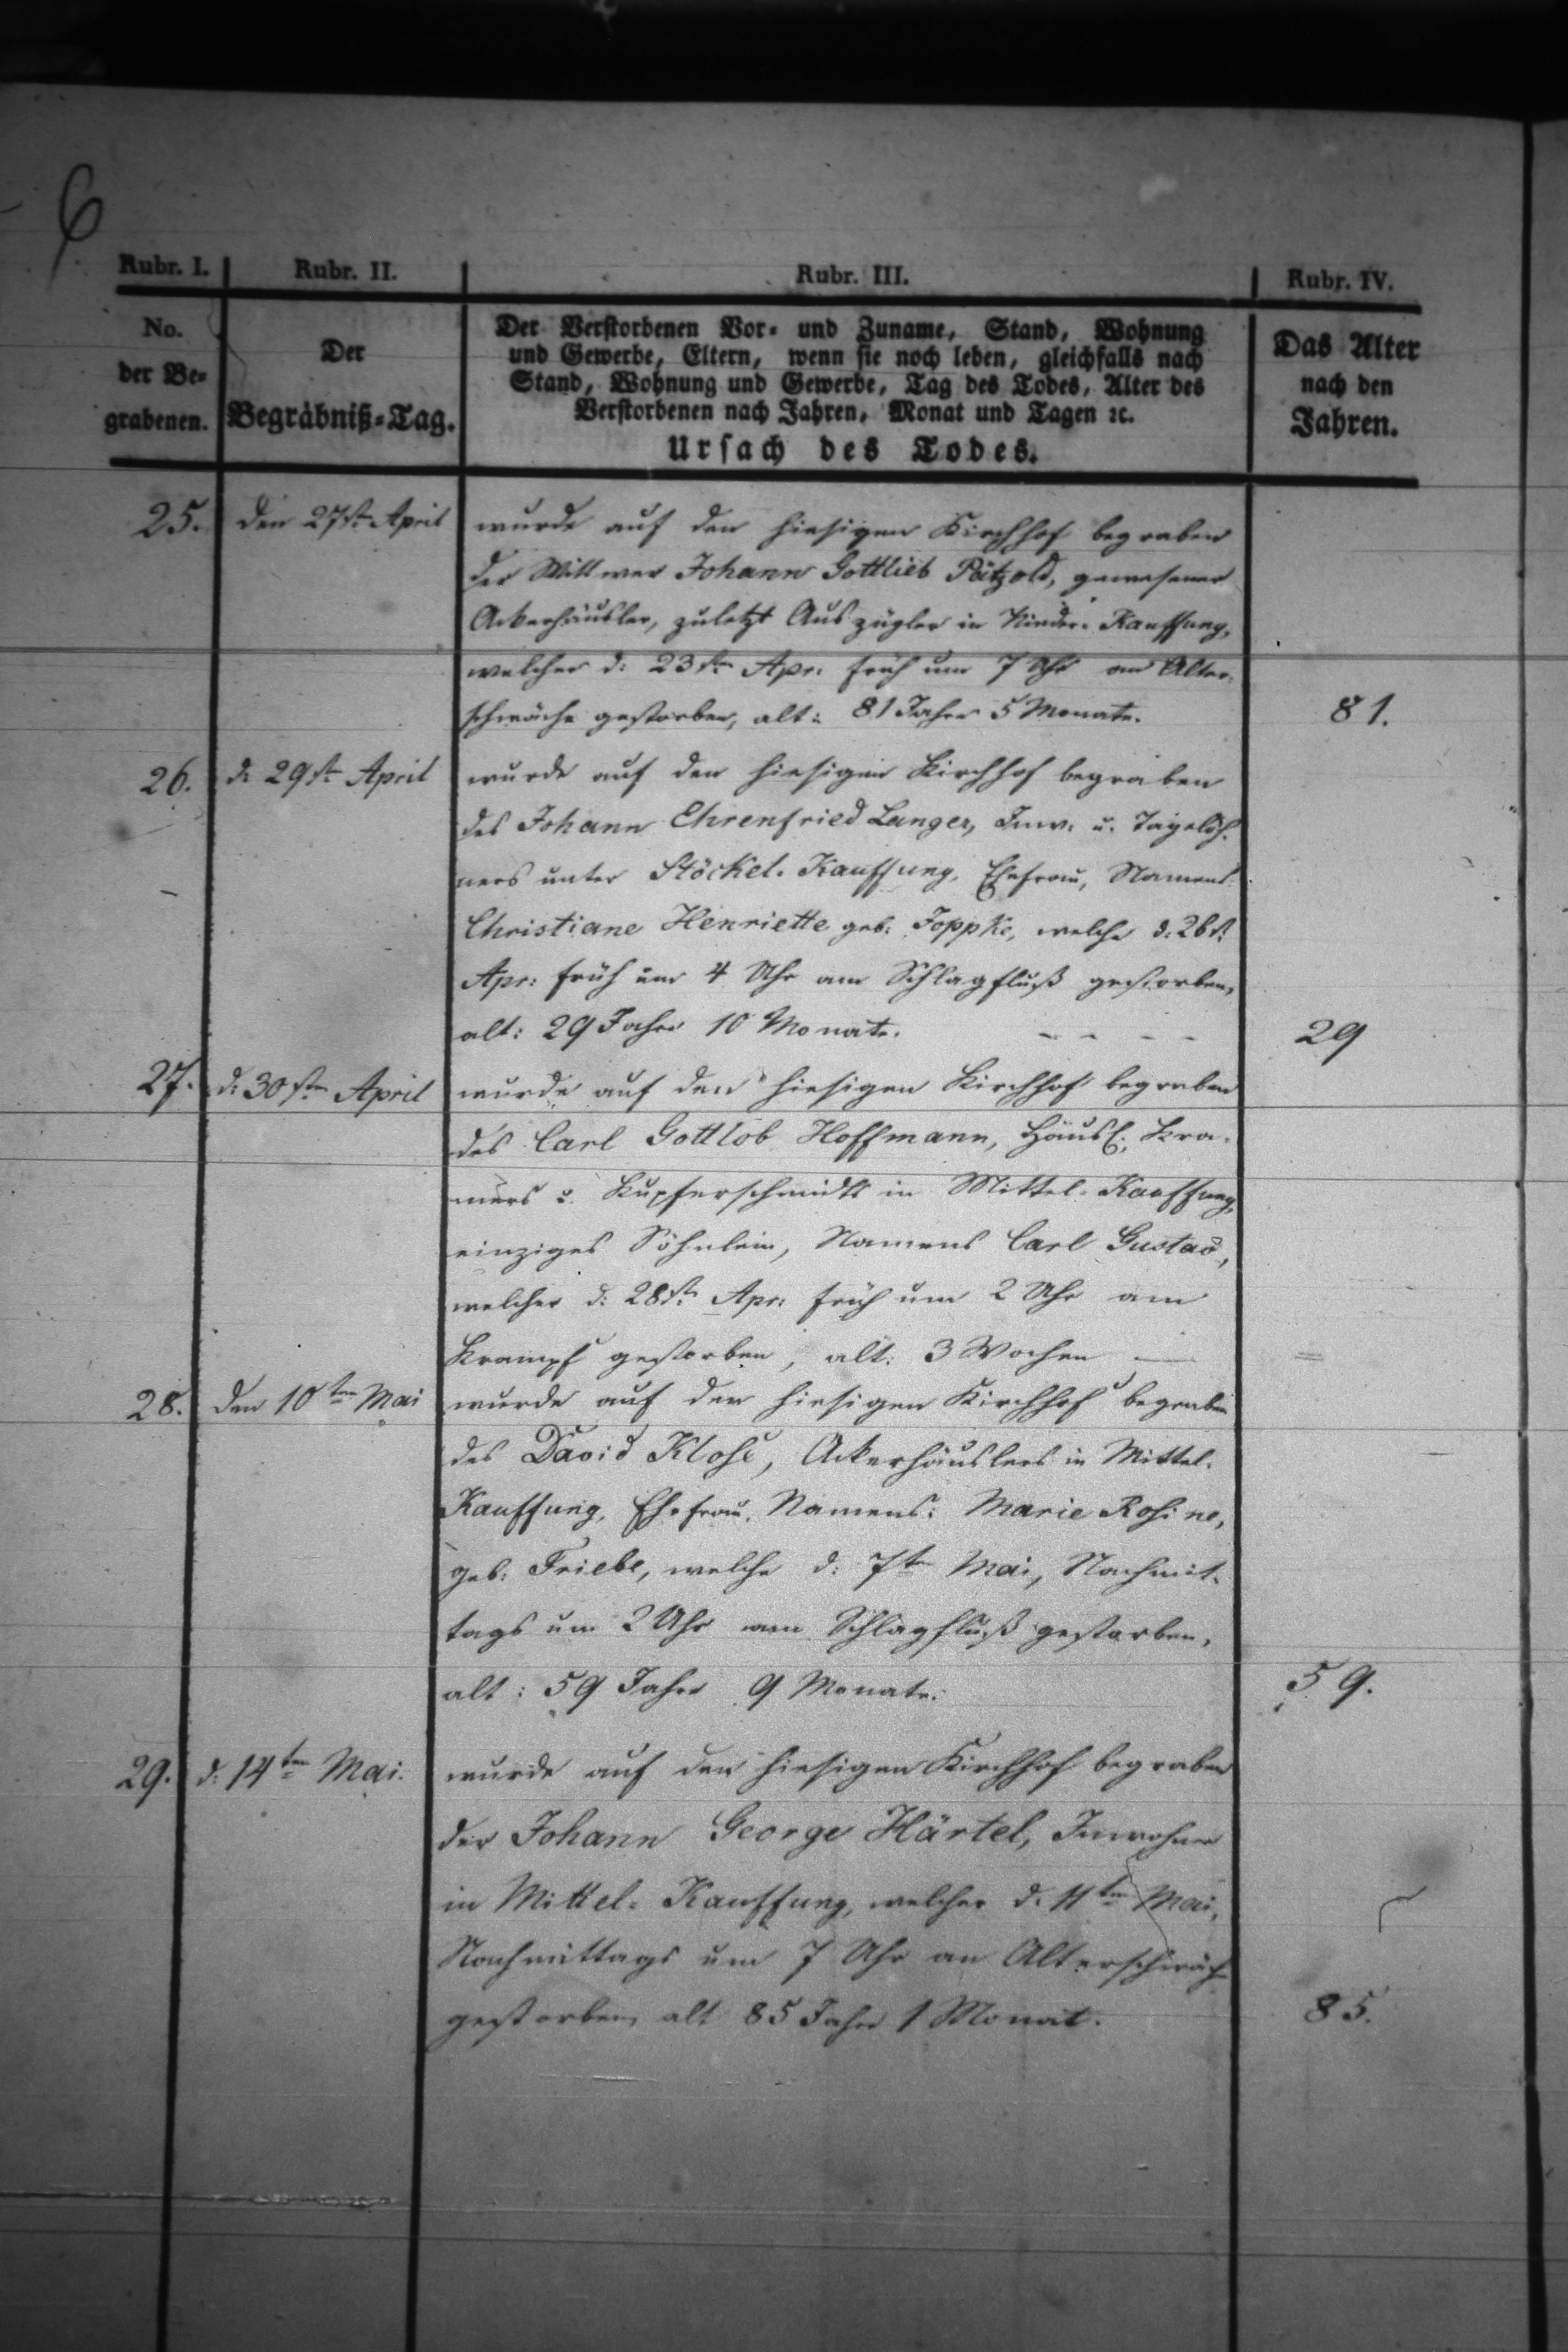 6
Rubr. I. Rubr. II. Rubr. III. Rubr. IV.
No. der Be= grabenen.
Der Begräbniß=Tag.
Der Verstorbenen Vor= und Zuname, Stand, Wohnung
und Gewerbe, Eltern, wenn sie noch leben, gleichfalls nach
Stand, Wohnung und Gewerbe, Tag des Todes, Alter des
Verstorbenen nach Jahren, Monat und Tagen ꝛc.
Ursach des Todes.
Das Alter nach den Jahren.
25. den 27st. April wurde auf den hiesigen Kirchhof begraben
der Wittwer Johann Gottlieb Pätzold, gewesener
Ackerhäusler, zuletzt Auszügler in Nieder-Kauffung,
welcher d: 23stn Apr: früh um 7 Uhr an Alter-
schwäche gestorben, alt: 81 Jahre 5 Monate. 81.
26. d: 29stn April wurde auf den hiesigen Kirchhof begraben
des Johann Ehrenfried Langer, Inw. u. Tagelöh-
ners unter Stöckel-Kauffung, Ehefrau, Namens
Christiane Henriette geb: Joppke, welche d: 26st.
Apr: früh um 4 Uhr am Schlagfluß gestorben,
alt: 29 Jahre 10 Monate. - - - - 29
27. d: 30stn April wurde auf den hiesigen Kirchhof begraben
des Carl Gottlob Hoffmann, Häusl:, Kra-
mers u. Kupferschmidts in Mittel-Kauffung,
einziges Söhnlein, Namens Carl Gustav,
welcher d: 28stn Apr: früh um 2 Uhr am
Krampf gestorben, alt: 3 Wochen — =
28. den 10ten Mai wurde auf den hiesigen Kirchhof begraben
des David Klose, Ackerhäuslers in Mittel-
Kauffung, Ehefrau, Namens: Marie Rosine,
geb: Friebe, welche d: 7tn Mai, Nachmit-
tags um 2 Uhr am Schlagfluß gestorben,
alt: 59 Jahre 9 Monate. 59.
29. d: 14ten Mai. wurde auf den hiesigen Kirchhof begraben
der Johann George Härtel, Inwohner
in Mittel-Kauffung, welcher d: 11ten Mai,
Nachmittags um 7 Uhr an Alterschwäche
gestorben, alt 85 Jahre 1 Monat. 85.